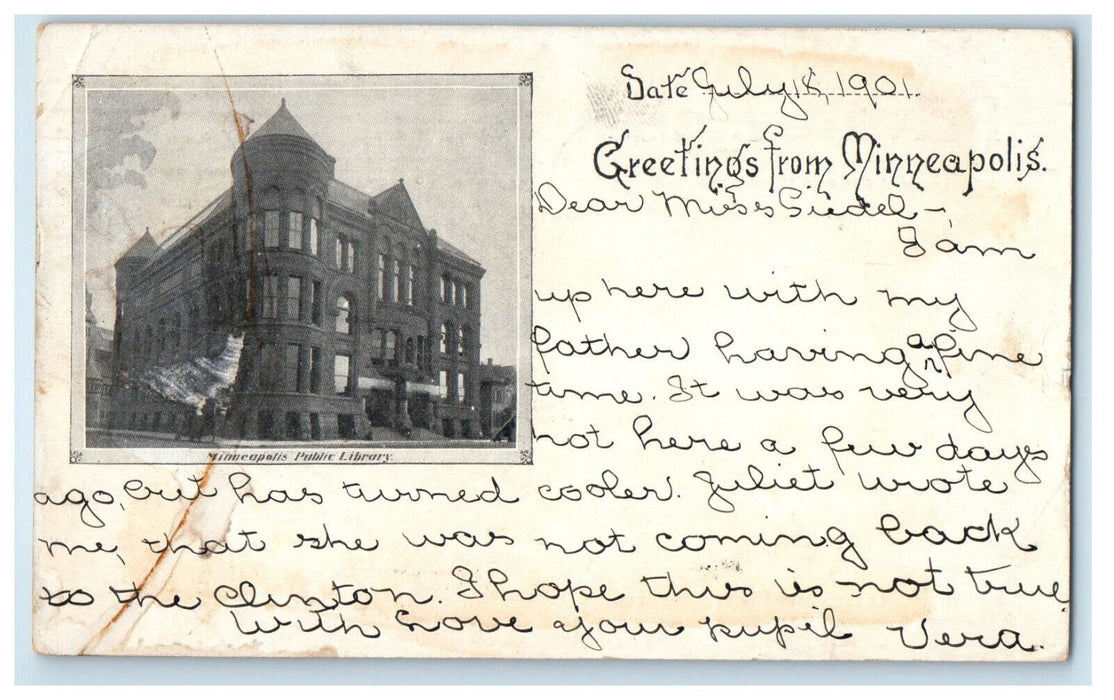 Date July 18, 1901.
Greetings from Minneapolis.
Dear Miss Siedel-,
I am
up here with my
father having a fine
time. It was very
hot here a few dayes
Minneapolis Public Library.
ago, but has turned cooler. Juliet wrote
me, that she was not coming back
to the Clinton. I hope this is not true
With Love your pupil Vera.